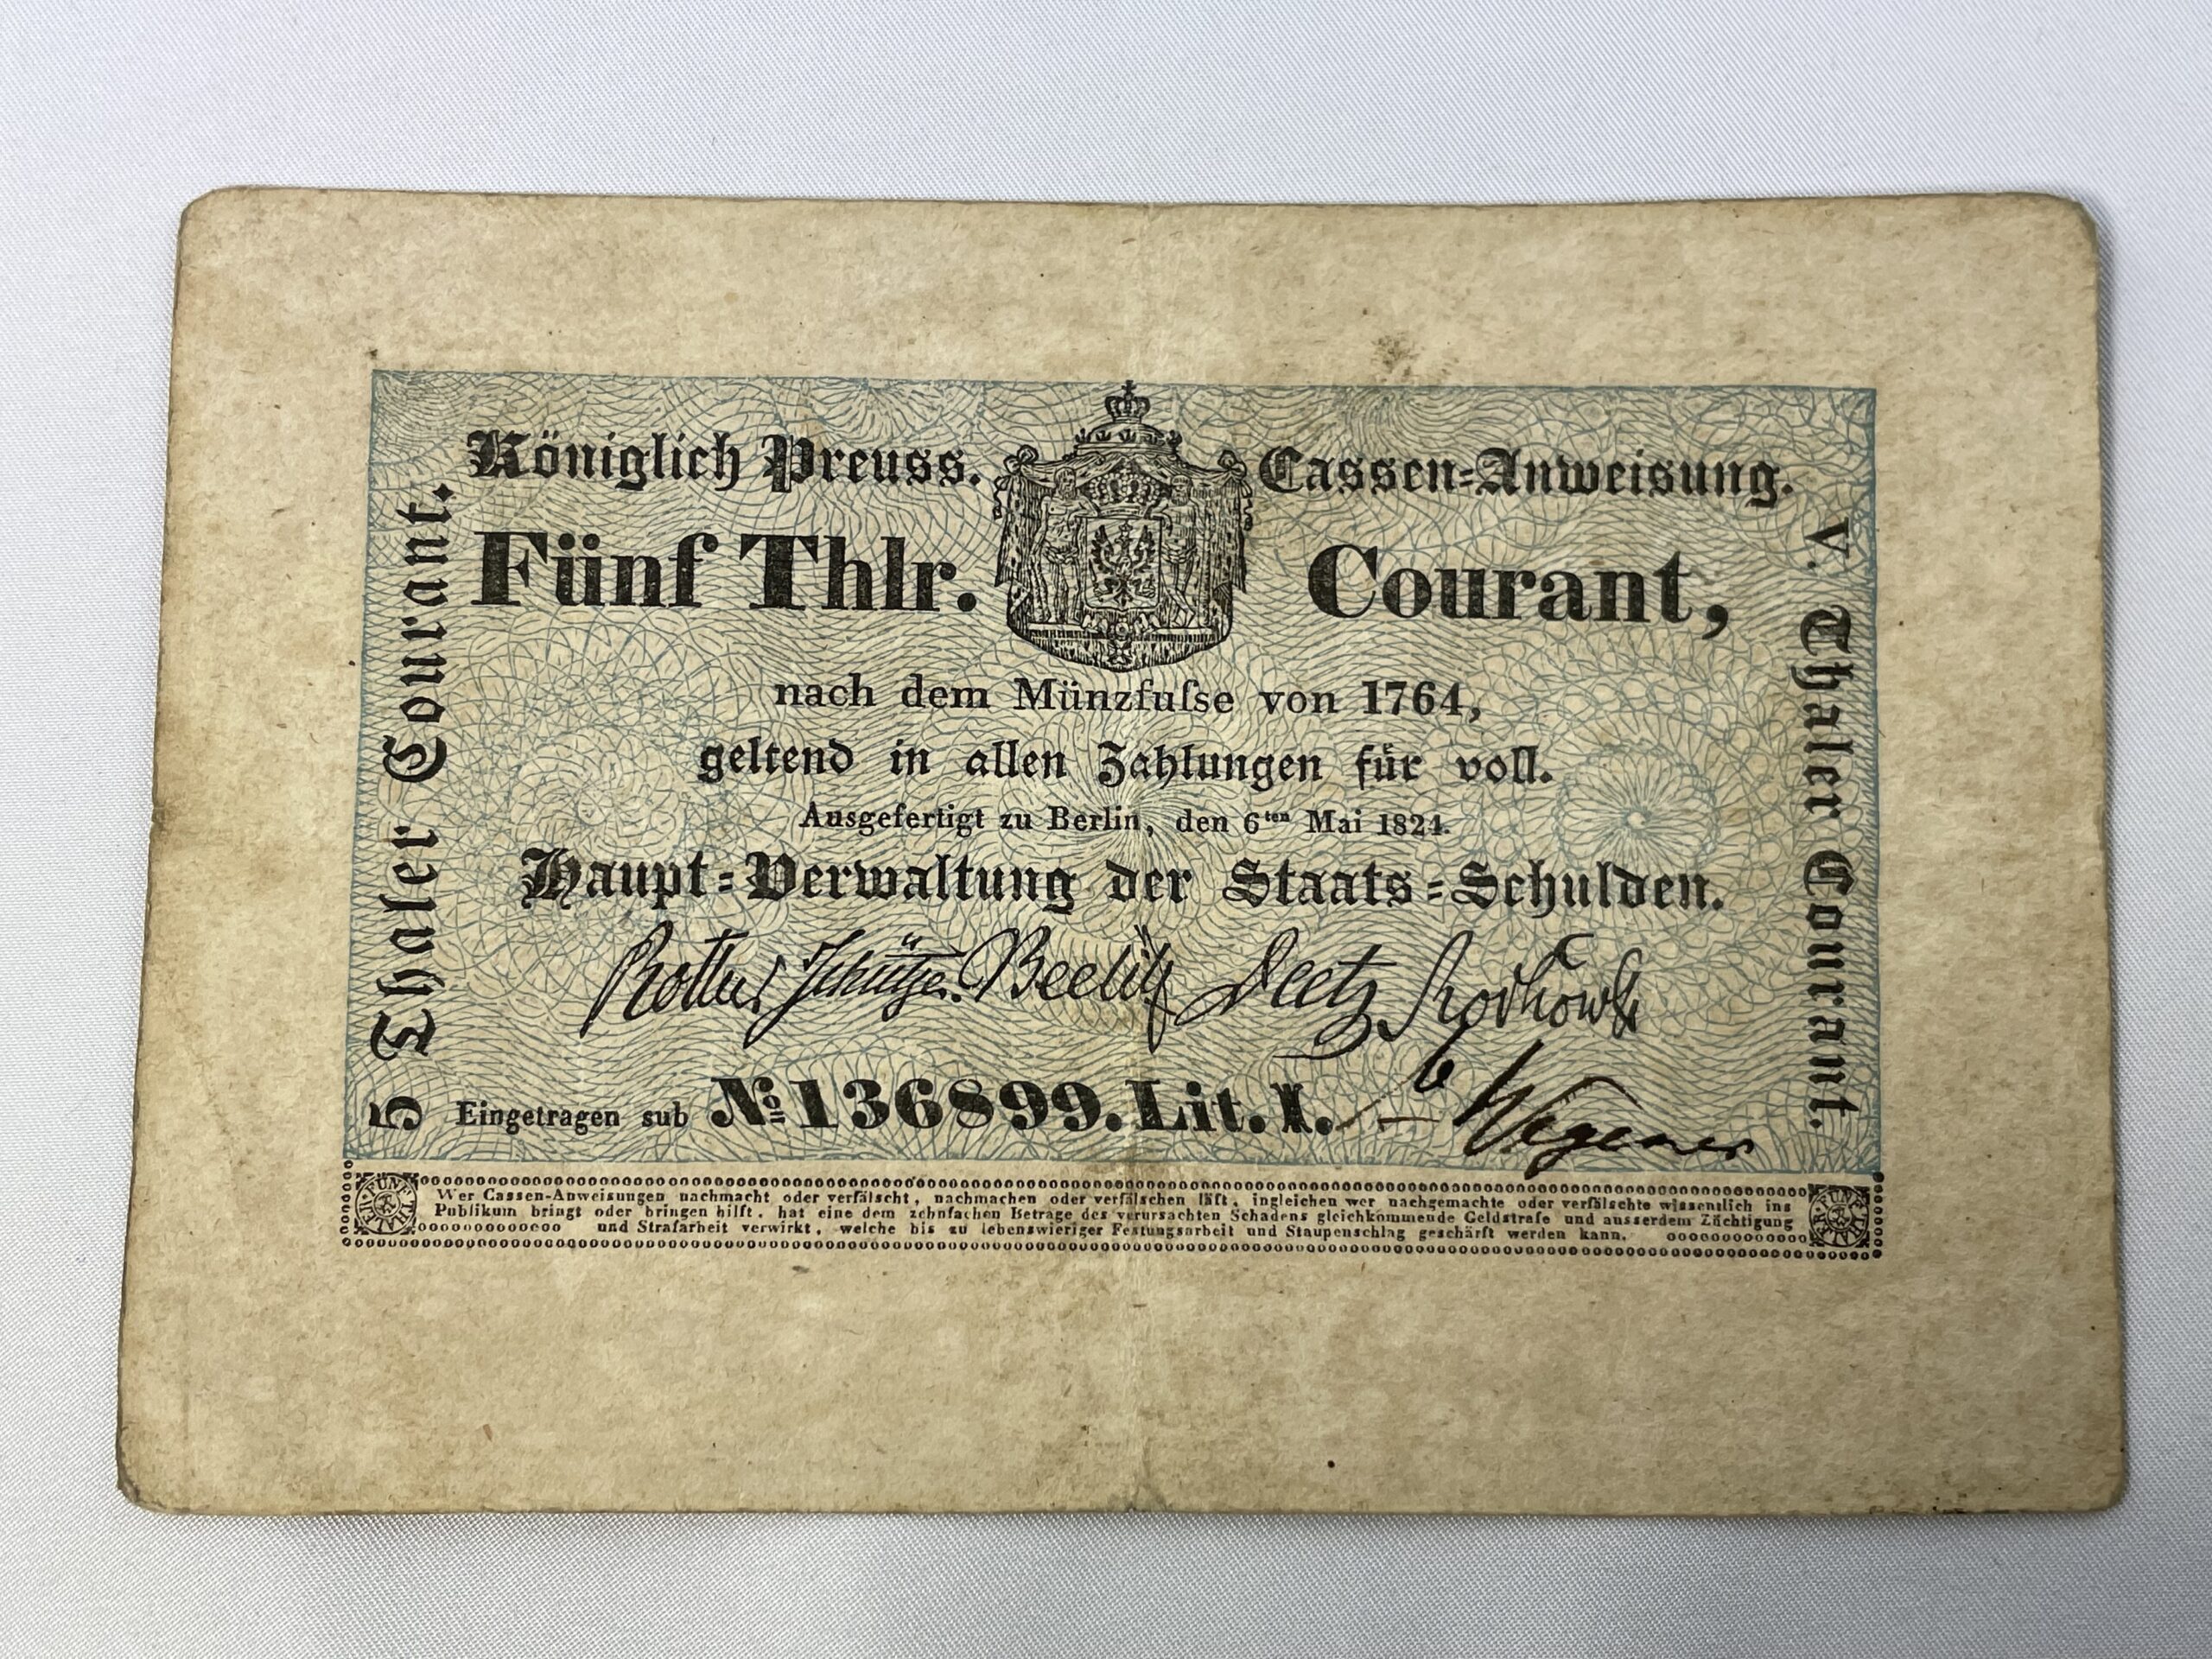 Königlich Preuss. Cassen=Anweisung.
Fünf Thlr. Courant,
nach dem Münzfuſse von 1764,
geltend in allen Zahlungen für voll.
Ausgefertigt zu Berlin, den 6ten Mai 1824.
Haupt=Verwaltung der Staats=Schulden.
Rother Schütze. Beelitz Deetz Rochow
Eingetragen sub No 136899. Lit. I. Wegener
5 Thaler Courant.
V. Thaler Courant.
Wer Cassen-Anweisungen nachmacht oder verfälscht, nachmachen oder verfälschen läſt, ingleichen wer nachgemachte oder verfälschte wissentlich ins
Publikum bringt oder bringen hilft, hat eine dem zehnfachen Betrage des verursachten Schadens gleichkommende Geldstrafe und ausserdem Züchtigung
und Strafarbeit verwirkt, welche bis zu lebenswieriger Festungsarbeit und Staupenschlag geschärft werden kann.
FÜNF THALER